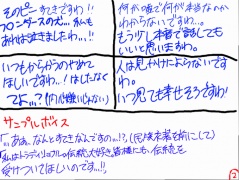 そのピー すてきですわ!!
フロンダースの犬… 私も
あれは泣きましたわ…!!
何が嘘で何が本当なのか
わからないですわ…。
もう少し本音で話しても
いいと思いますわ。
いつもからかうのやめて
ほしいですわ…! はしたなく
てよ…? (内心嫌いじゃない)
人は見かけによらないです
わ。
いつ見ても幸せそうですわ!
サンプルボイス
「…ああ、なんてすてきなんですの…!?」(民族衣装を前にして)
「私はトラディショナルの伝統大好き、皆様にも、伝統を
受けついでほしいのです…!!